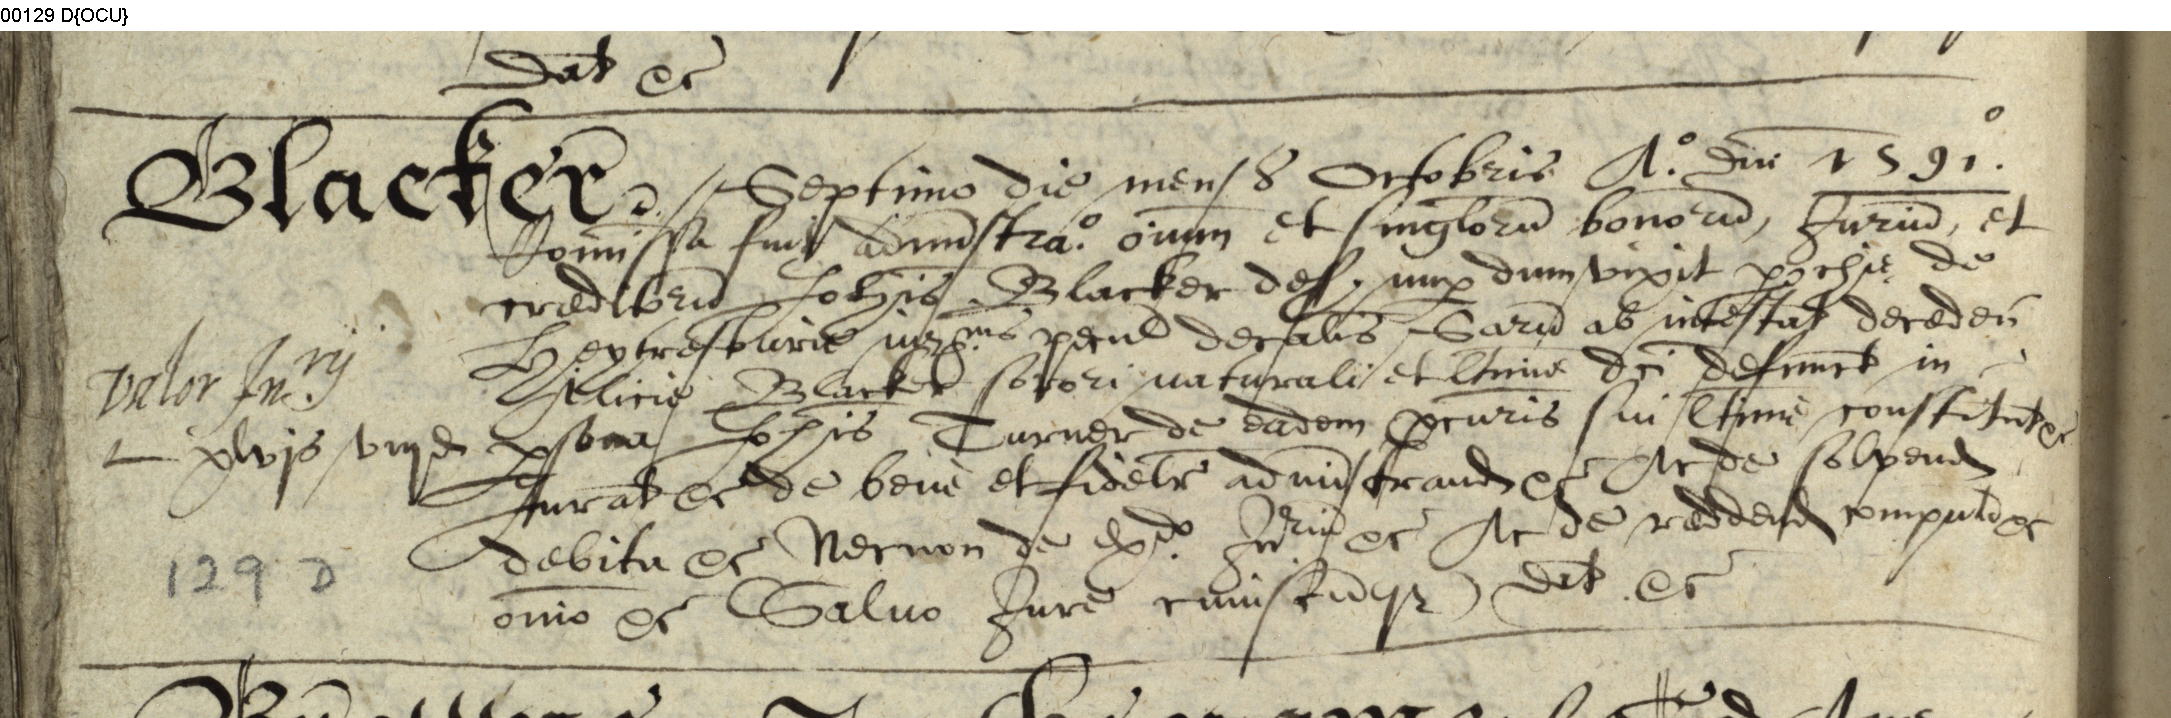 00129 D{OCU}
Dat &c
Blacker // Septimo die mens 8 Octobris Ao. dni 1591o.
Comissa fuit administrao. oium et singlorum bonorum, Jurium, et
creditorum Johis Blacker def. nup dum vixit pochie de
Heytresburie pecul decalis Sarum ab intestat deceden
Blacker sorori naturali et ltime dci defunct in
psona Johis Turner de eadem pcuris sui ltime constitut &c
Jurat &c de bene et fidelr administrand &c Ac de solvend
debita &c Necnon de &c Ac de reddend computo &c
omo &c Salvo Jure cuiuscumque Dat. &c
valor Inrij
L xlvjs viijd
129 D